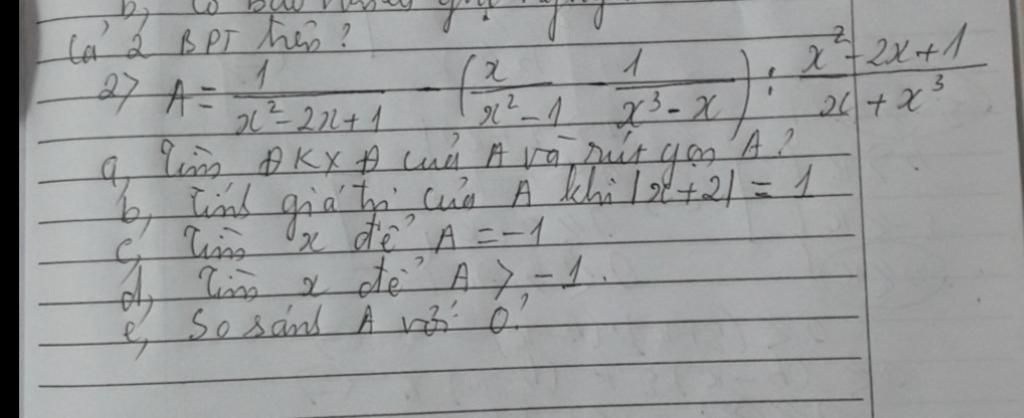 cả 2 BPT trên?
2) A = 1/(x² - 2x + 1) - (x/(x² - 1) - 1/(x³ - x)) : (x² - 2x + 1)/(x + x³)
a, Tìm ĐKXĐ của A và rút gọn A?
b, Tính giá trị của A khi |x + 2| = 1
c, Tìm x để A = -1
d, Tìm x để A > -1.
e, So sánh A với 0?